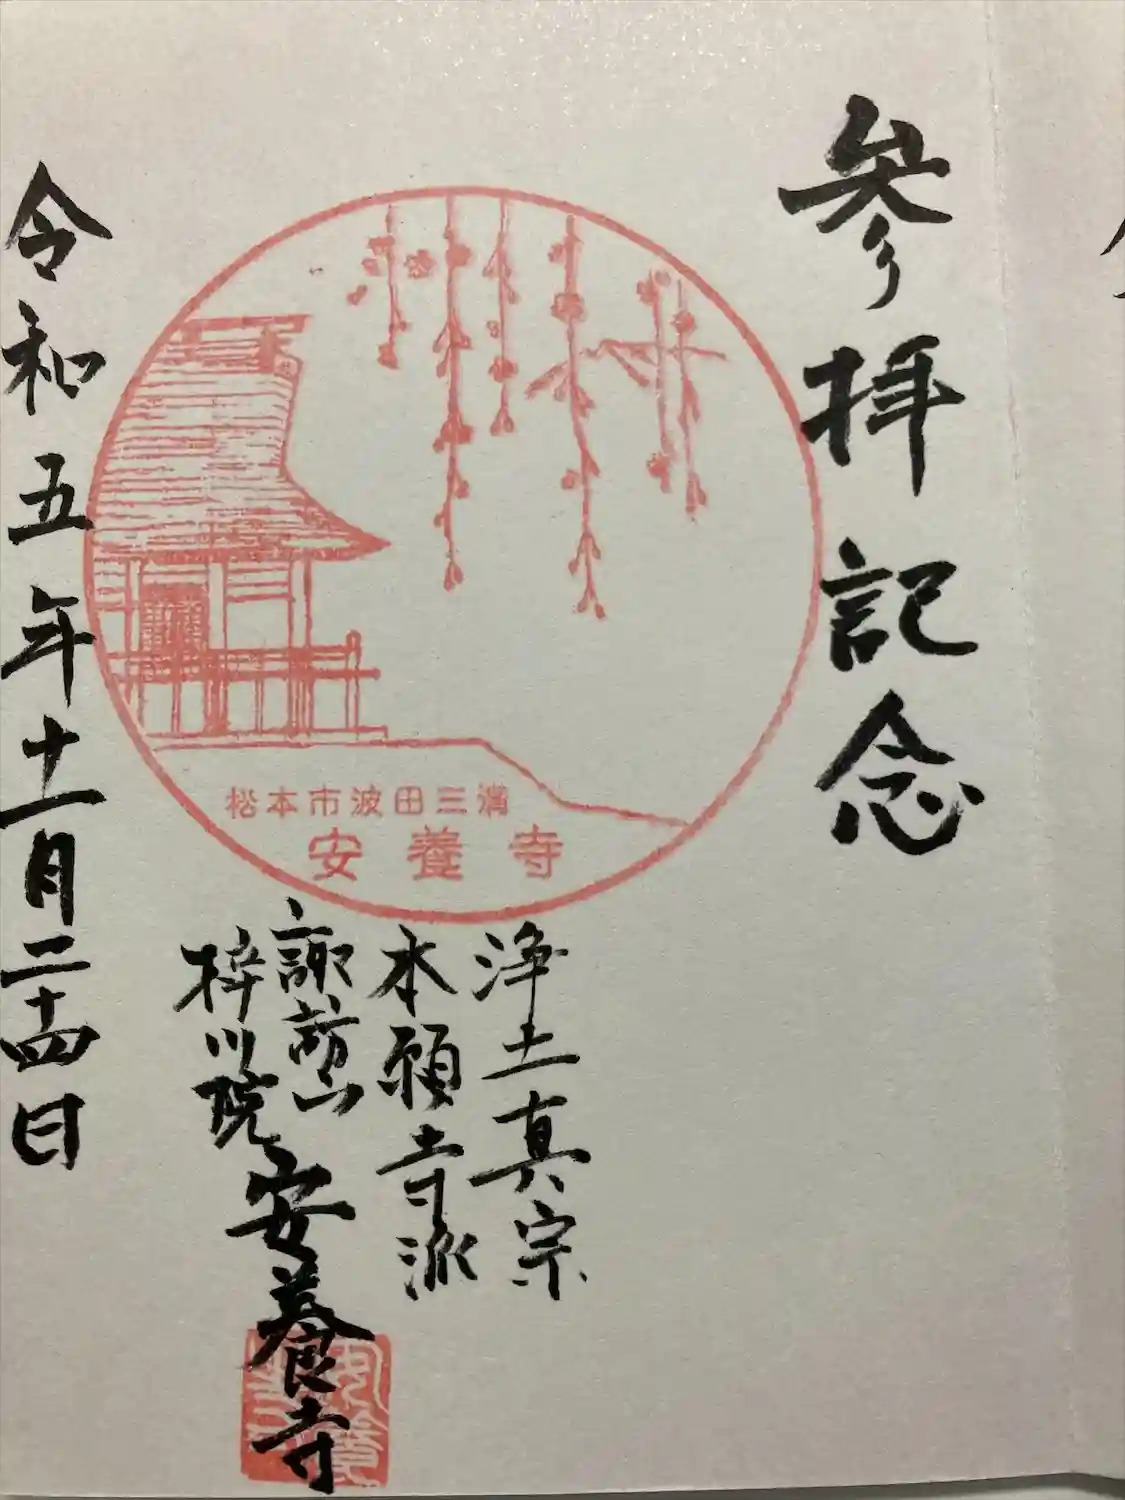 參拝記念
松本市波田三溝
安養寺
浄土真宗
本願寺派
諏訪山
梓川院
安養寺
令和五年十一月二十四日